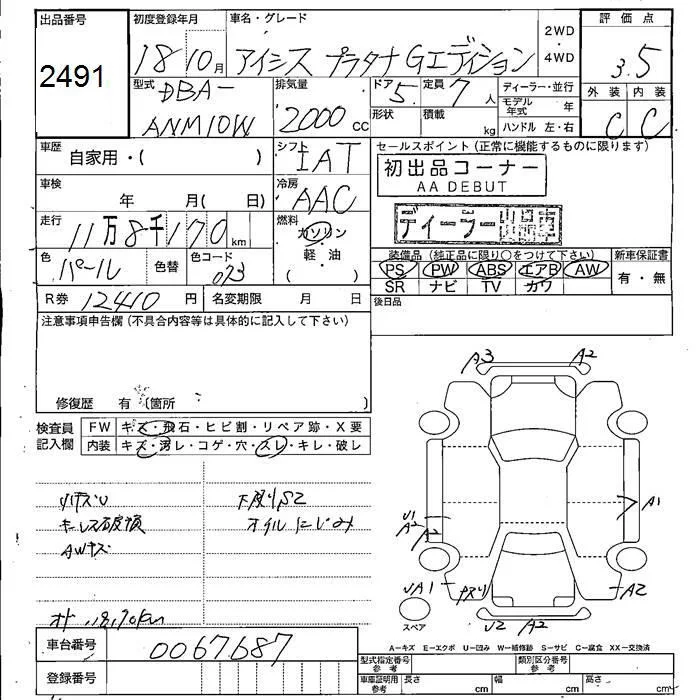 出品番号 初度登録年月 車名・グレード 2WD・4WD 評価点
2491 18 10月 アイシス プラタナ Gエディション 3.5
型式 DBA-ANM10W 排気量 2000cc ドア 5 形状 定員 7人 積載 kg ディーラー・並行 モデル年式 年 ハンドル 左・右 外装 C 内装 C
車歴 自家用・( ) シフト IAT セールスポイント(正常に機能するものに限ります)
初出品コーナー
AA DEBUT
車検 年 月( 日) 冷房 AAC
ディーラー出品車
走行 11万8千170km 燃料 ガソリン・軽油 ( )
装備品(純正品に限り○をつけて下さい) 新車保証書
色 パール 色替 色コード 073
PS PW ABS エアB AW 有・無
SR ナビ TV カワ
R券 12410円 名変期限 月 日 後日品
注意事項申告欄(不具合内容等は具体的に記入して下さい)
修復歴 有 (箇所 )
検査員記入欄 FW キズ・飛石・ヒビ割・リペア跡・X要
内装 キズ・汚レ・コゲ・穴・スレ・キレ・破レ
A3 A2
リヤキズU 下廻りS2
キーレス破損 オイルにじみ
AWキズ
A1
U1
A2
A2
UA1 A2
スペア U2 A2
オド 118170km
車台番号 0067687
A-キズ E-エクボ U-凹み W-補修跡 S-サビ C-腐食 XX-交換済
登録番号
型式指定番号 参考 類別区分番号 参考
車庫証明用 参考 長さ cm 幅 cm 高さ cm